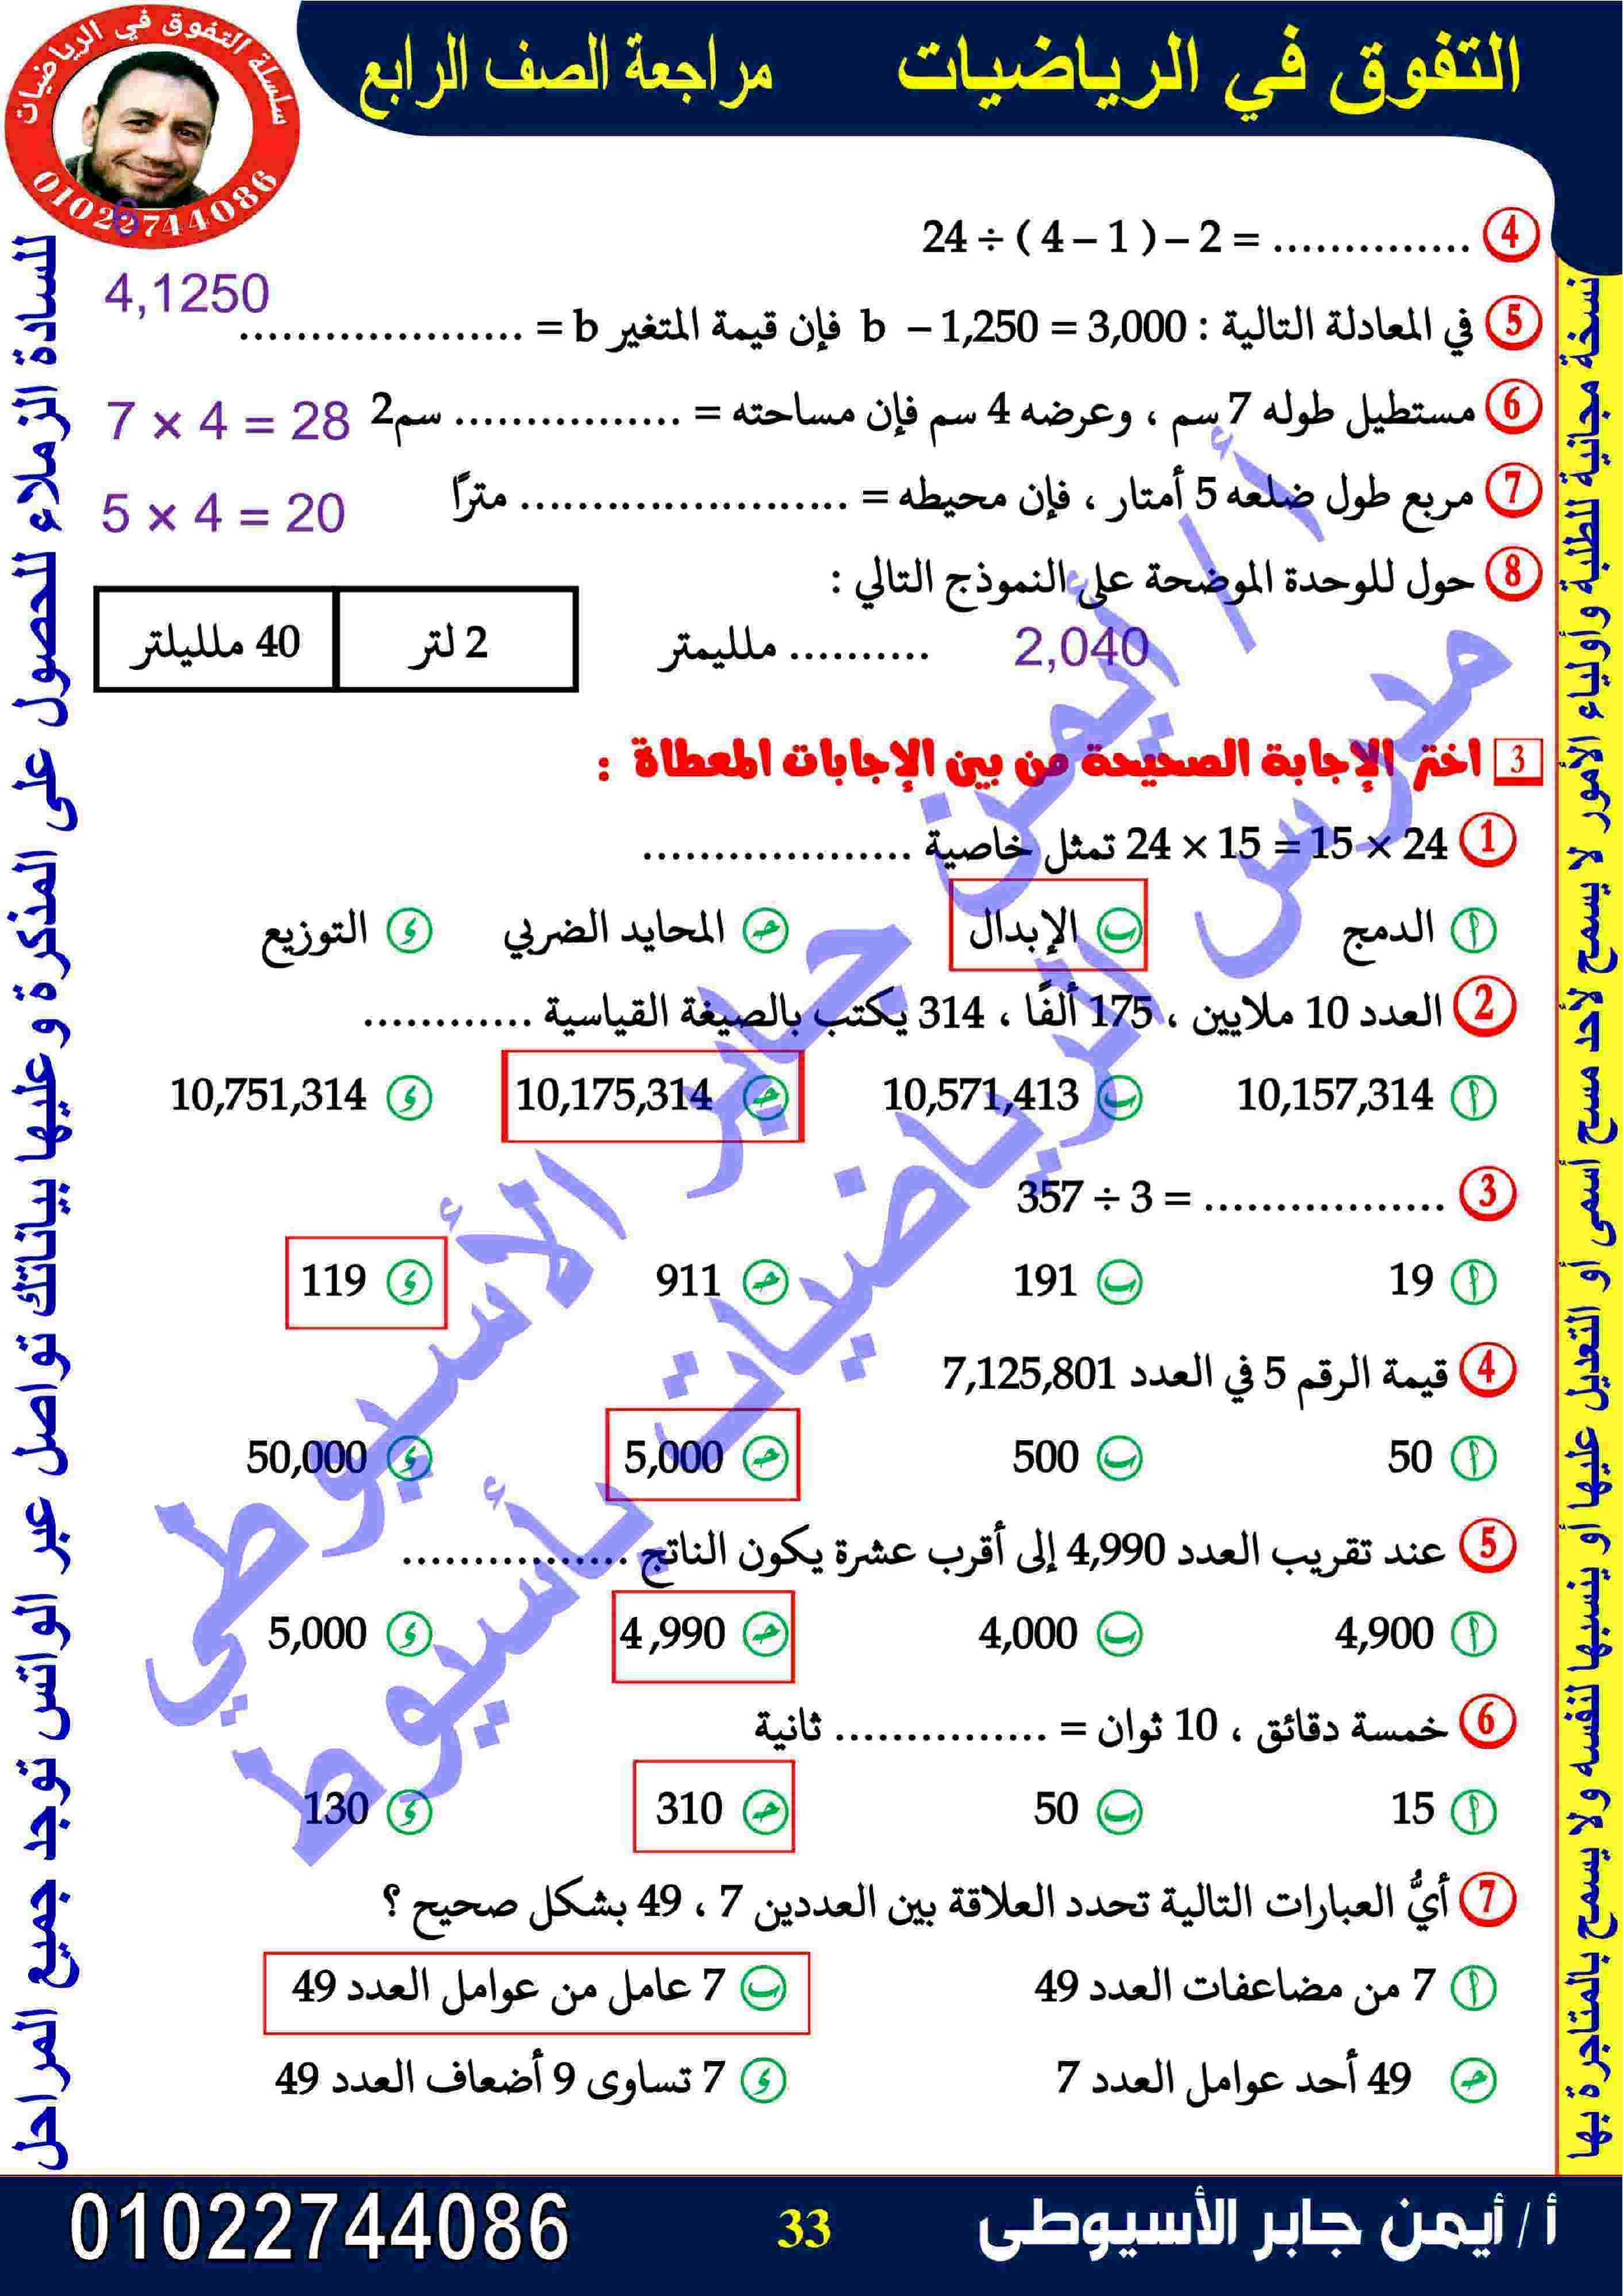 التفوق في الرياضيات
مراجعة الصف الرابع
سلسلة التفوق في الرياضيات
01022744086
6
4 24 ÷ ( 4 – 1 ) – 2 = ..............
4,1250
5 في المعادلة التالية : b – 1,250 = 3,000 فإن قيمة المتغير b = ....................
6 مستطيل طوله 7 سم ، وعرضه 4 سم فإن مساحته = ................ سم2
7 × 4 = 28
7 مربع طول ضلعه 5 أمتار ، فإن محيطه = ....................... مترًا
5 × 4 = 20
8 حول للوحدة الموضحة على النموذج التالي :
2,040
.......... ملليمتر
2 لتر
40 ملليلتر
3 اختر الإجابة الصحيحة من بين الإجابات المعطاة :
1 24 × 15 = 15 × 24 تمثل خاصية ...................
أ الدمج ب الإبدال جـ المحايد الضربي د التوزيع
2 العدد 10 ملايين ، 175 ألفًا ، 314 يكتب بالصيغة القياسية ............
أ 10,157,314 ب 10,571,413 جـ 10,175,314 د 10,751,314
3 357 ÷ 3 = .................
أ 19 ب 191 جـ 911 د 119
4 قيمة الرقم 5 في العدد 7,125,801
أ 50 ب 500 جـ 5,000 د 50,000
5 عند تقريب العدد 4,990 إلى أقرب عشرة يكون الناتج ................
أ 4,900 ب 4,000 جـ 4,990 د 5,000
6 خمسة دقائق ، 10 ثوان = ............... ثانية
أ 15 ب 50 جـ 310 د 130
7 أيُّ العبارات التالية تحدد العلاقة بين العددين 7 ، 49 بشكل صحيح ؟
أ 7 من مضاعفات العدد 49 ب 7 عامل من عوامل العدد 49
جـ 49 أحد عوامل العدد 7 د 7 تساوى 9 أضعاف العدد 49
أ / أيمن جابر الأسيوطي
مدرس الرياضيات بأسيوط
نسخة مجانية للطلبة وأولياء الأمور لا يسمح لأحد مسح اسمى أو التعديل عليها أو ينسبها لنفسه ولا يسمح بالمتاجرة بها
للسادة الزملاء للحصول على المذكرة و عليها بياناتك تواصل عبر الواتس توجد جميع المراحل
أ / أيمن جابر الأسيوطى
33
01022744086